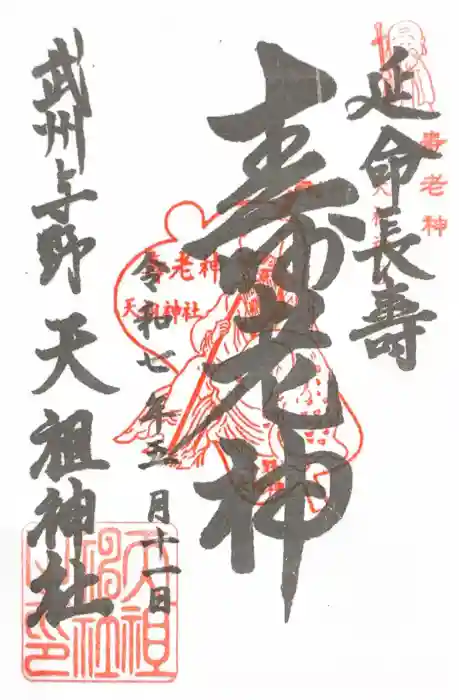 延命長壽
壽老神
寿老神
令和七年五月十一日
寿老神
天祖神社
武州与野 天祖神社